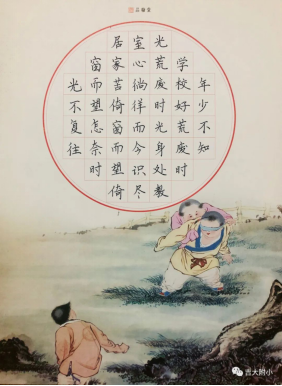 年少不知
学校好荒废时
光荒废时光身处教
室心徜徉而今识尽
居家苦倚窗而望倚
窗而望怎奈时
光不复往
吉大附小